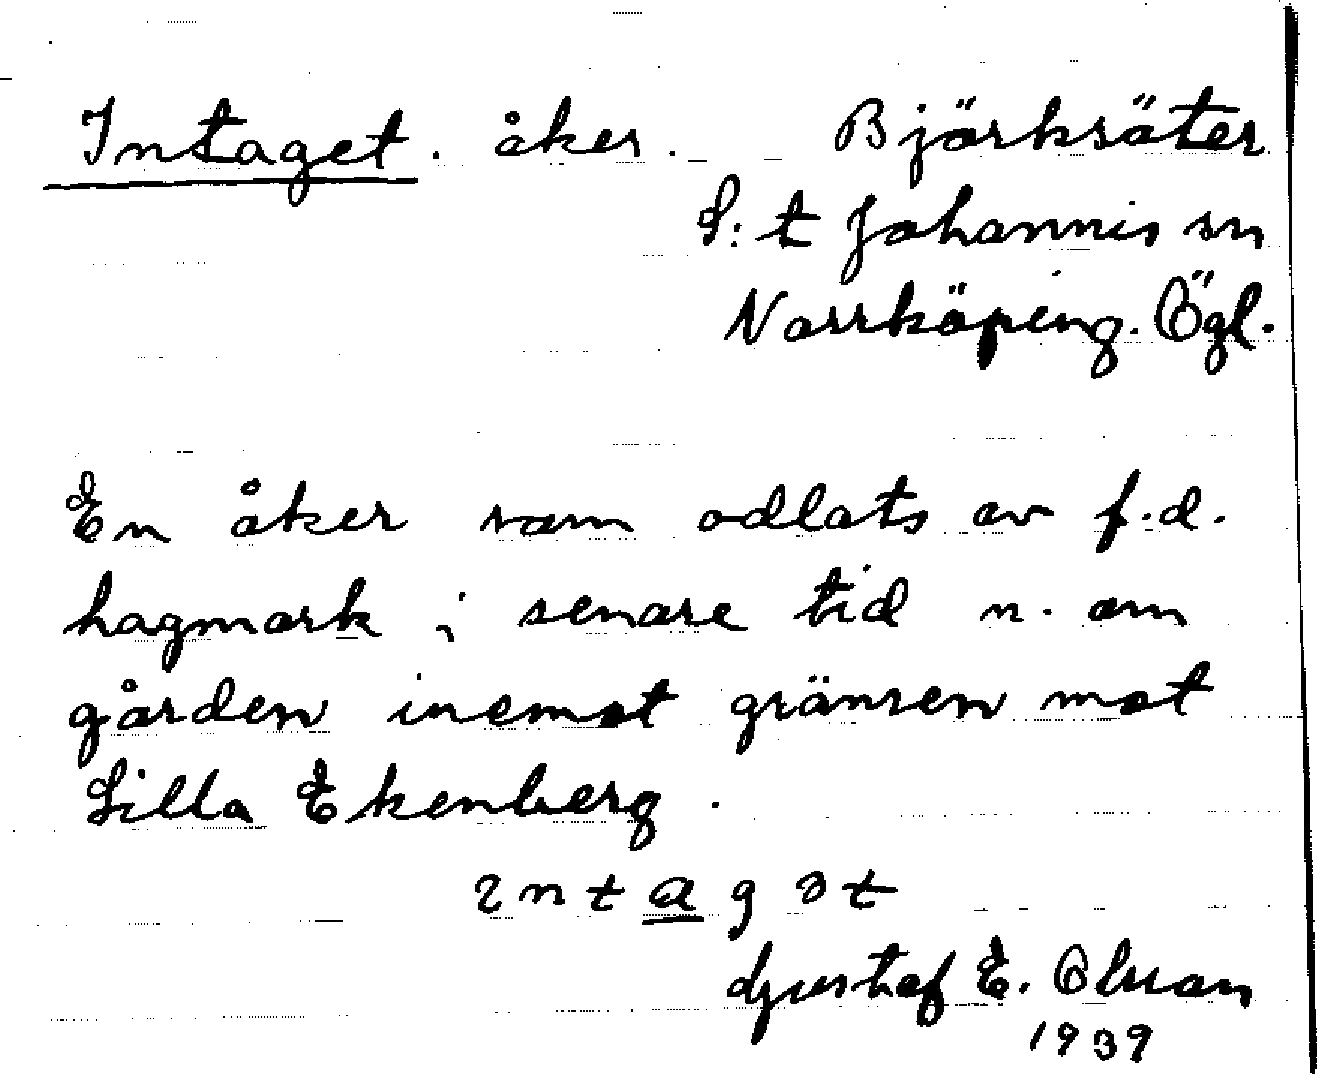 Intaget. åker. Björksäter
S:t Johannis sn
Norrköping. Ögl.
En åker som odlats av f.d.
hagmark i senare tid n. om
gården inemot gränsen mot
Lilla Ekenberg.
2 n t a g 3 t
Gustaf E. Olsson
1939